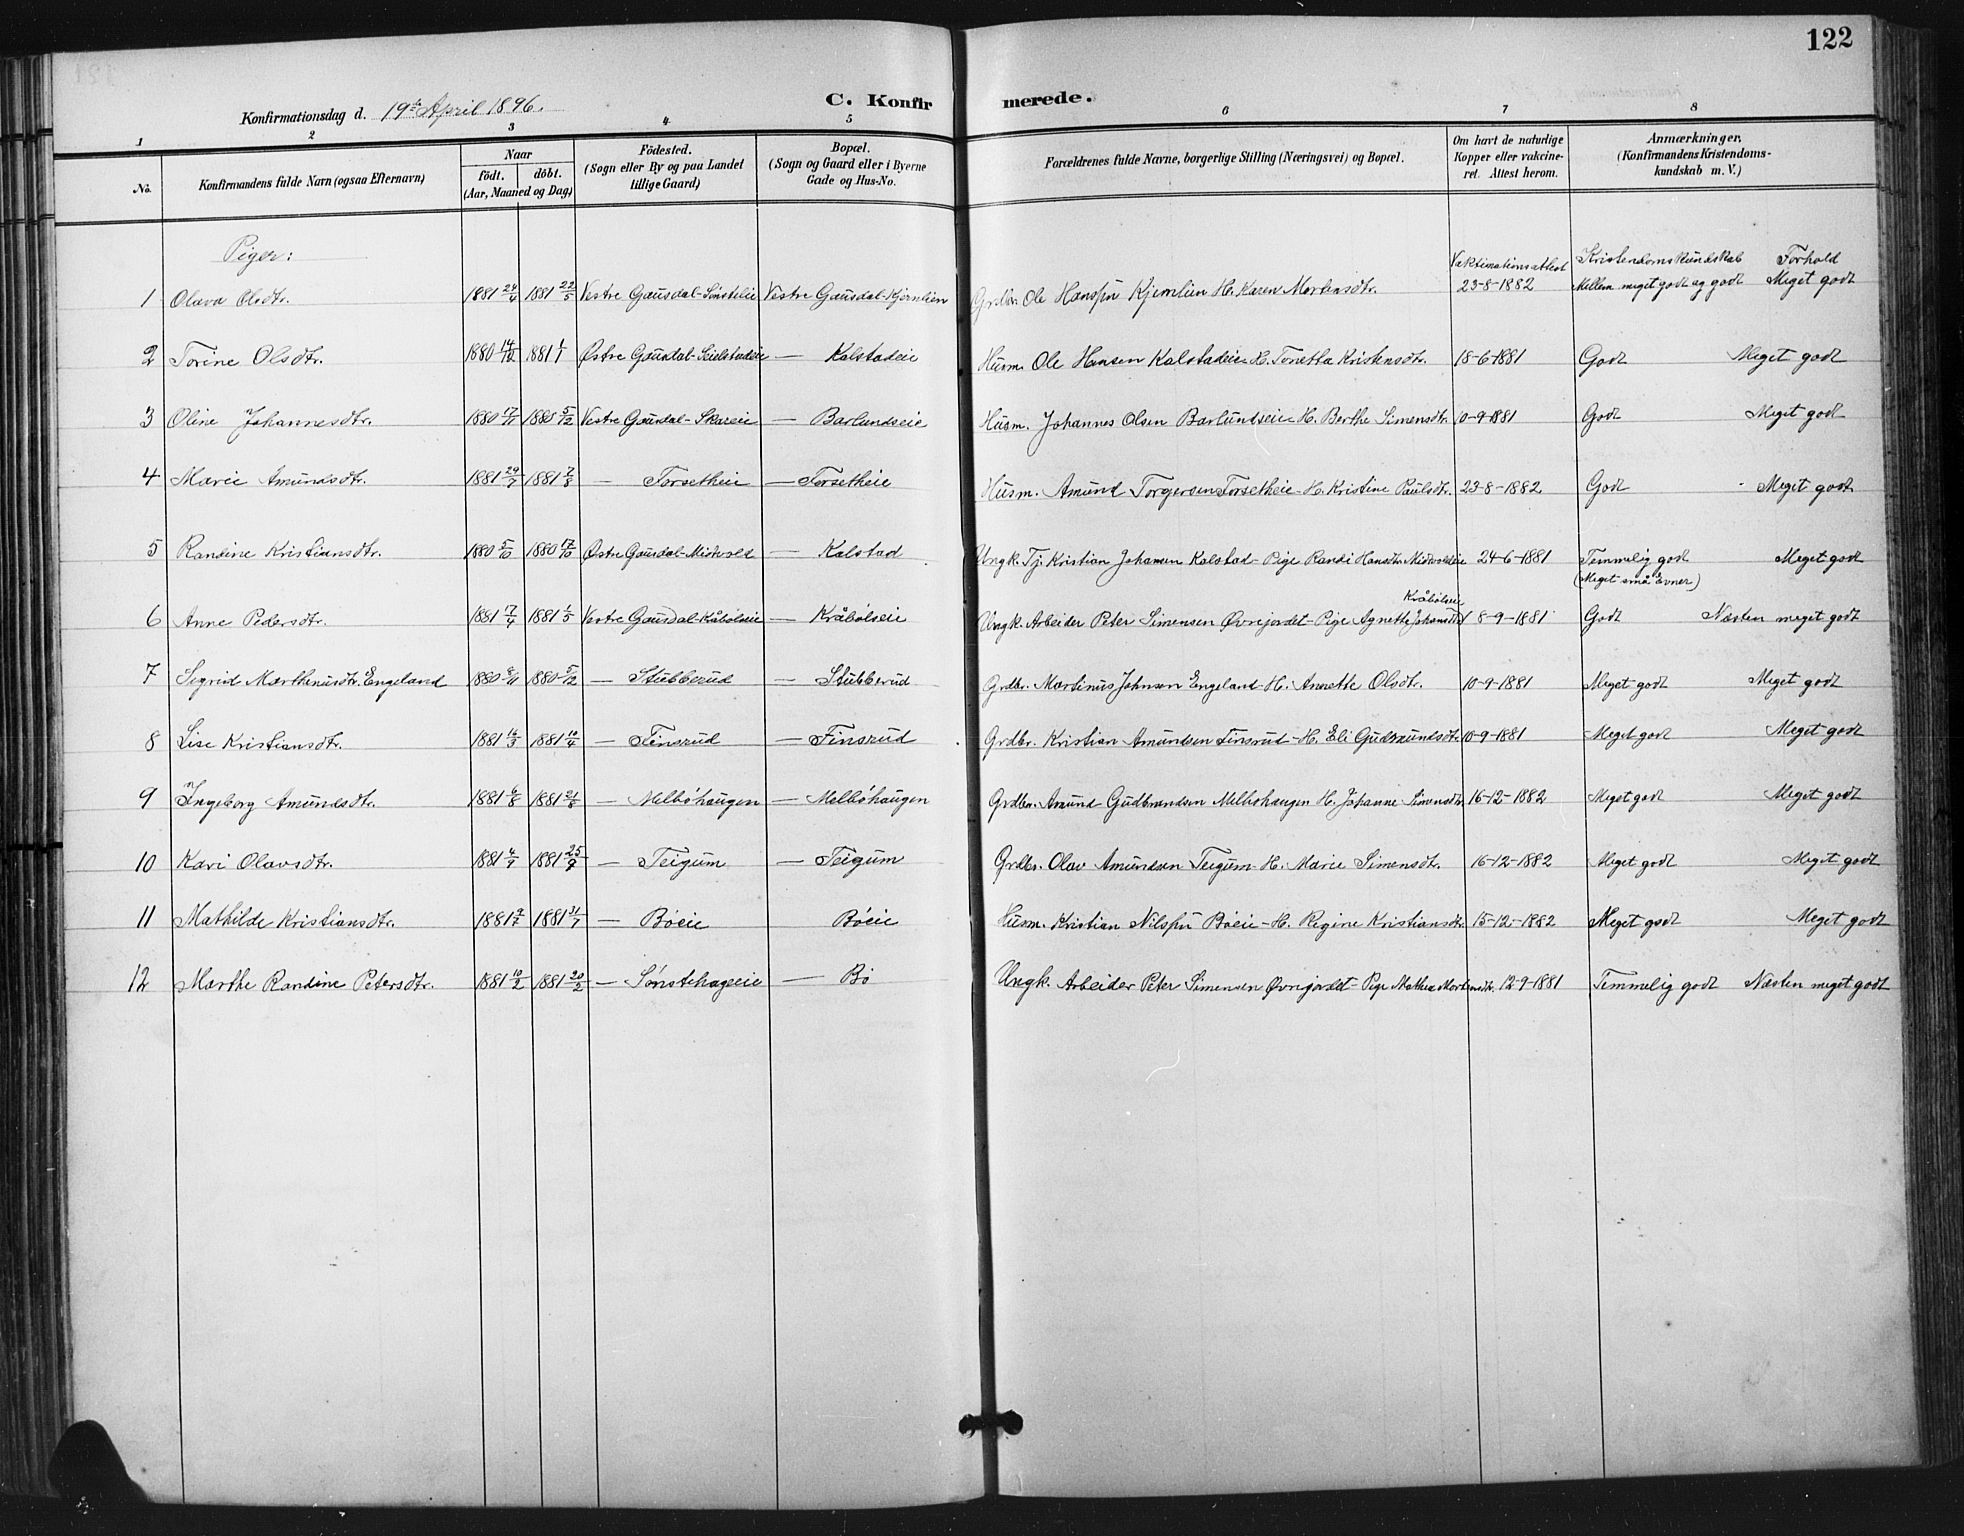 122
Konfirmationsdag d. 19de April 1896.
C. Konfirmerede.
1 2 3 4 5 6 7 8
No.
Konfirmandens fulde Navn (ogsaa Efternavn)
Naar
födt. döbt.
(Aar, Maaned og Dag)
Födested.
(Sogn eller By og paa Landet
tillige Gaard)
Bopæl.
(Sogn og Gaard eller i Byerne
Gade og Hus-No.
Forældrenes fulde Navne, borgerlige Stilling (Næringsvei) og Bopæl.
Om havt de naturlige
Kopper eller vakcine-
ret. Attest herom.
Anmærkninger.
(Konfirmandens Kristendoms-
kundskab m. V.)
Piger:
Vaktinationsattest Kristendomskundskab Forhold
1 Olava Olsdtr. 1881 24/4 1881 22/5 Vestre Gausdal-Sönstelie Vestre Gausdal-Kjørnlien Grdbr. Ole Hansen Kjernlien H. Karen Mortensdtr. 23-8-1882 Mellem meget godt og godt Meget godt
2 Torine Olsdtr. 1880 14/12 1881 1/1 Østre Gausdal-Seielstadeie — Kalstadeie Husm. Ole Hansen Kalstadeie H. Tonetta Kristensdtr. 18-6-1881 Godt Meget godt
3 Oline Johannesdtr. 1880 17/11 1880 5/12 Vestre Gausdal-Skareie — Barlundseie Husm. Johannes Olsen Barlundseie H. Berthe Simensdtr. 10-9-1881 Godt Meget godt
4 Marie Amundsdtr. 1881 29/7 1881 7/8 — Forsetheie — Forsetheie Husm. Amund Torgersen Forsetheie - H. Kristine Paulsdtr. 23-8-1882 Godt Meget godt
5 Randine Kristiansdtr. 1880 5/10 1880 17/10 Østre Gausdal-Midtvold — Kalstad Ungk. Tj. Kristian Johansen Kalstad - Pige Randi Hansdtr. Midtvoldeie 24-6-1881 Temmelig godt Meget godt
(Meget små Evner)
Kråbölseie
6 Anne Pedersdtr. 1881 17/4 1881 1/5 Vestre Gausdal-Kråbölseie — Kråbölseie Ungk. Arbeider Peter Simensen Øvrejordet - Pige Agnethe Johansdtr. 8-9-1881 Godt Næsten meget godt
7 Sigrid Marthinusdtr. Engeland 1880 8/11 1880 5/12 — Stubberud — Stubberud Grdbr. Martinus Johnsen Engeland - H. Annette Olsdtr. 10-9-1881 Meget godt Meget godt
8 Lise Kristiansdtr. 1881 16/3 1881 10/4 — Finsrud — Finsrud Grdbr. Kristian Amundsen Finsrud - H. Eli Gudmundsdtr. 10-9-1881 Meget godt Meget godt
9 Ingeborg Amundsdtr. 1881 6/8 1881 21/8 — Melböhaugen — Melböhaugen Grdbr. Amund Gudbrandsen Melbohaugen H. Johanne Simensdtr. 16-12-1882 Meget godt Meget godt
10 Kari Olavsdtr. 1881 4/9 1881 25/9 — Teigum — Teigum Grdbr. Olav Amundsen Teigum H. Marie Simensdtr. 16-12-1882 Meget godt Meget godt
11 Mathilde Kristiansdtr. 1881 9/7 1881 31/7 — Böeie Böeie Husm. Kristian Nilsen Böeie - H. Regine Kristiansdtr. 15-12-1882 Meget godt Meget godt
12 Marthe Randine Petersdtr. 1881 10/2 1881 20/2 — Sönstehageeie — Bö Ungk. Arbeider Peter Simensen Øvrejordet - Pige Mathea Mortensdtr. 12-9-1881 Temmelig godt Næsten meget godt